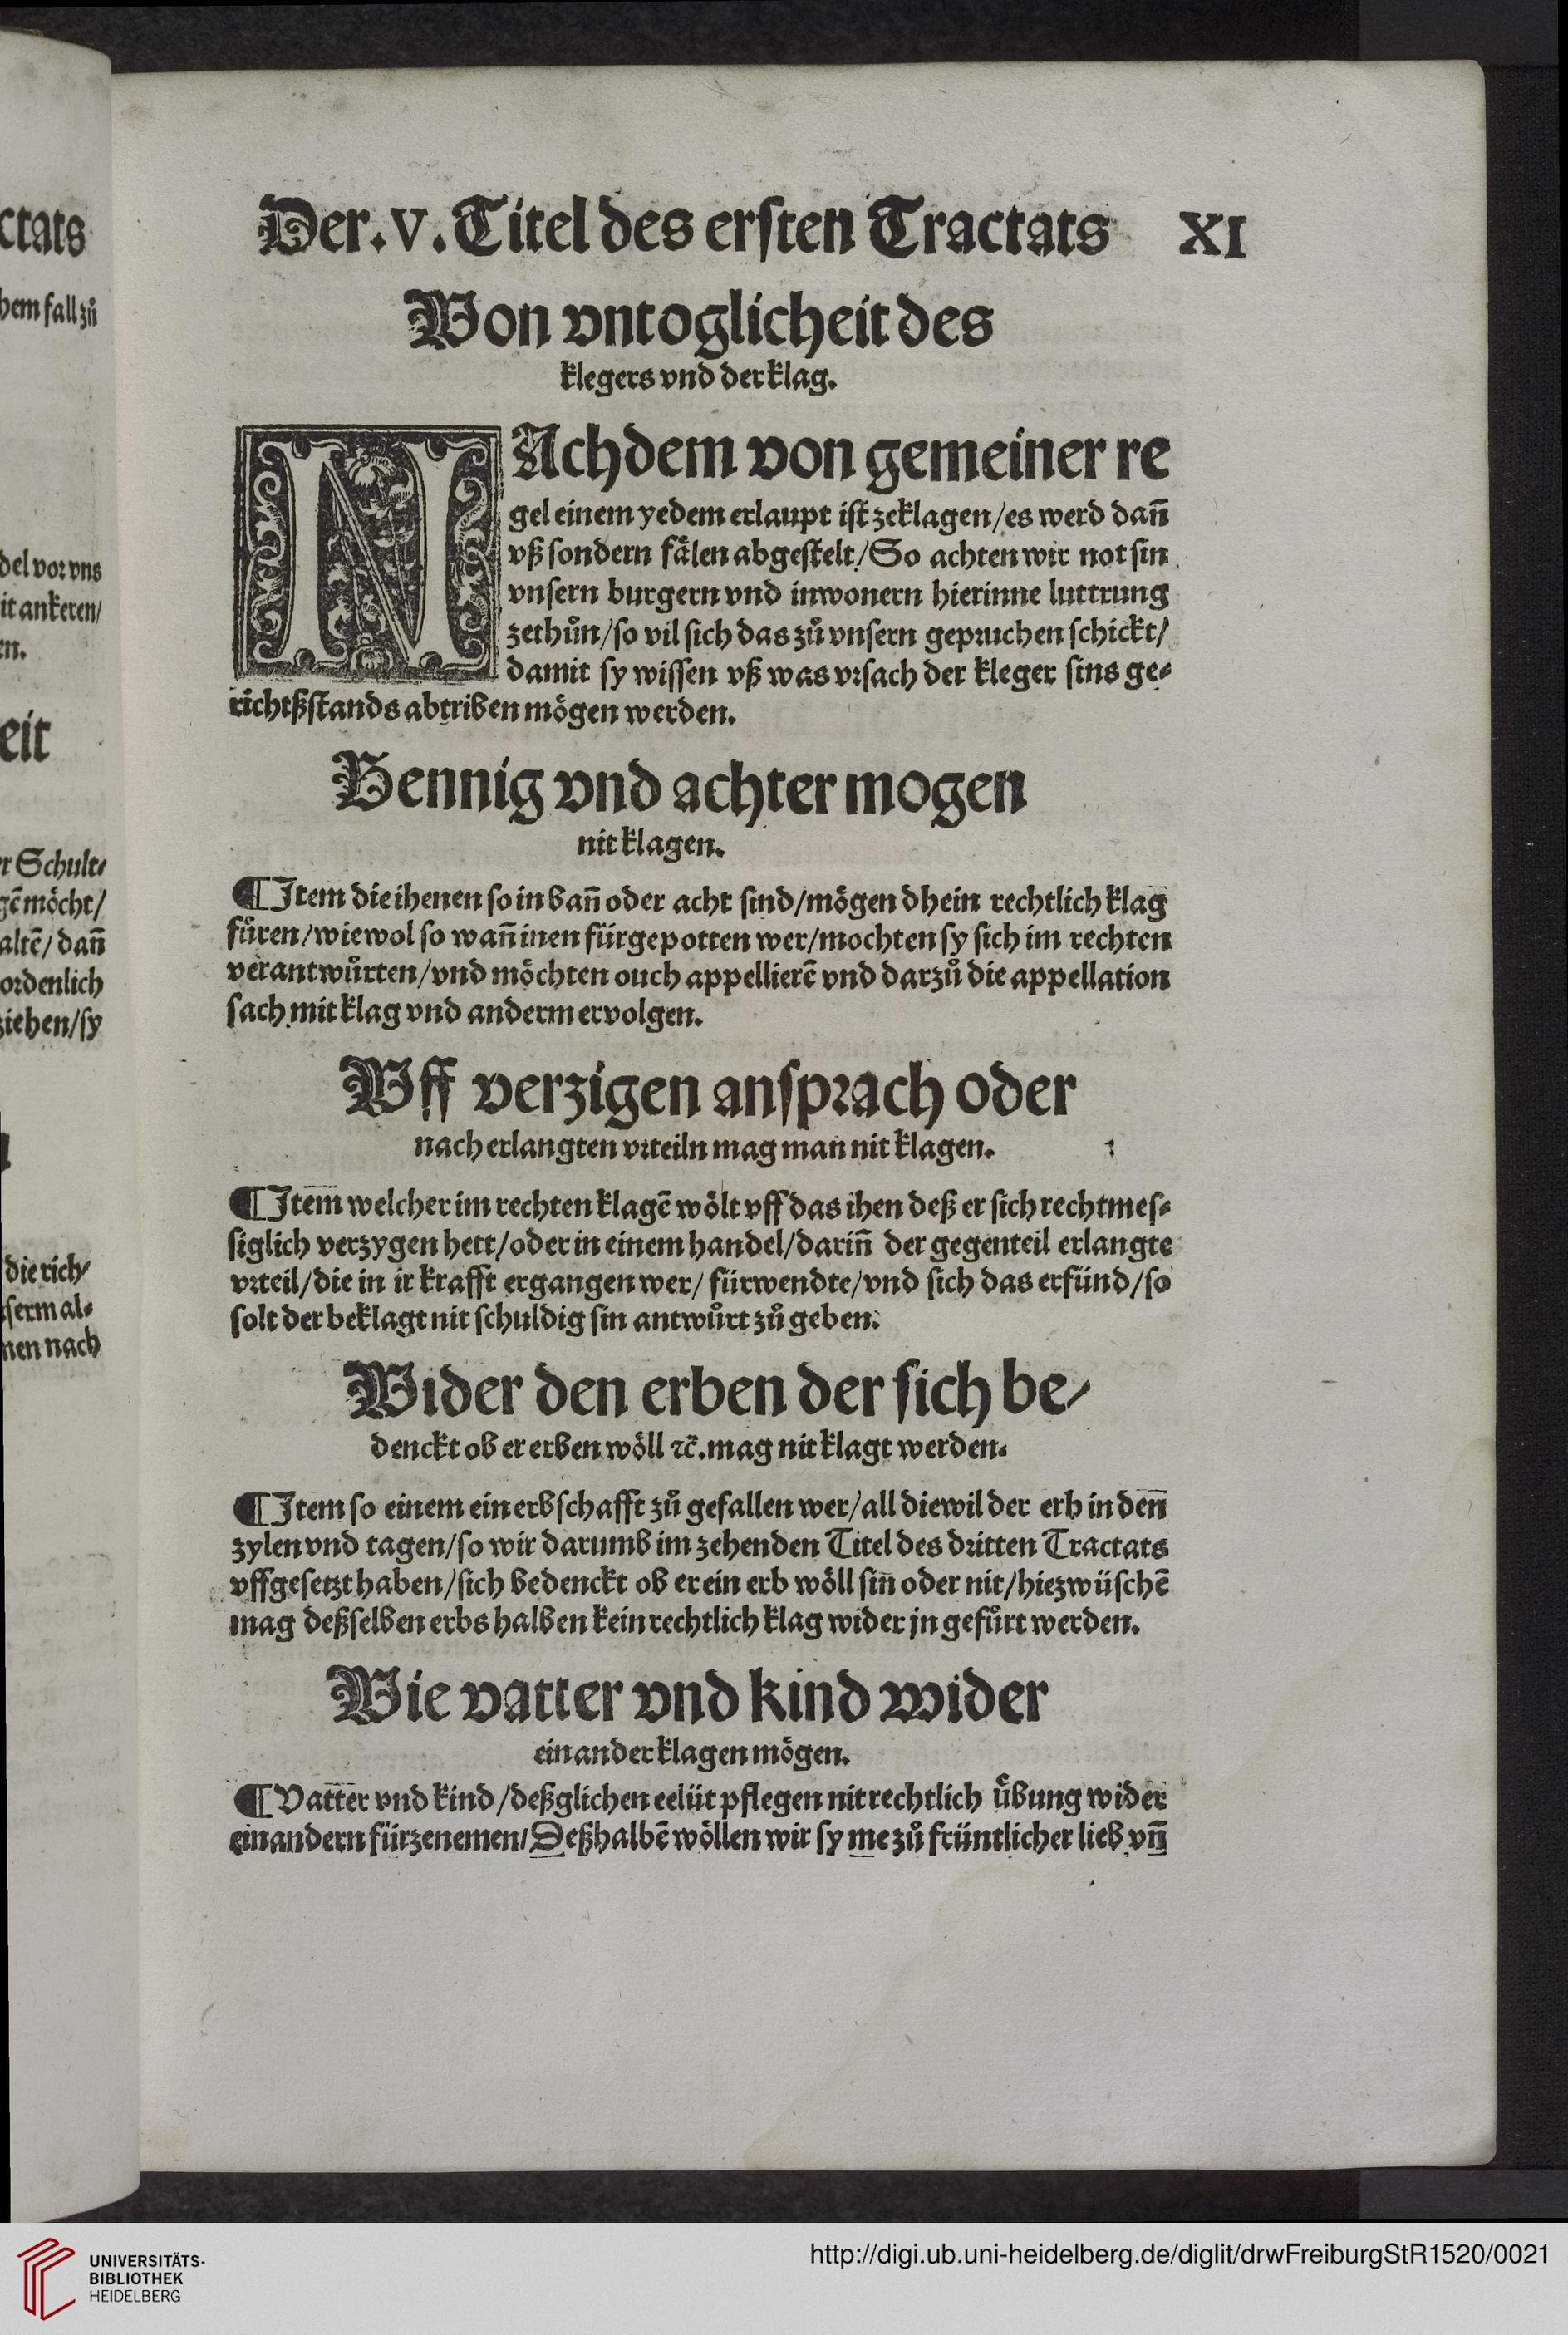 ctats
hem fall zů
del vor vns
it ankeren/
en.
eit
er Schult⸗
gē möcht/
altē/ dañ
ordenlich
ziehen/sy
die rich⸗
serm al⸗
nen nach
Der .v. Titel des ersten Tractats XI
Von vntoglicheit des
klegers vnd der klag.
NAchdem von gemeiner re
gel einem yedem erlaupt ist zeklagen/es werd dañ
vß sondern fälen abgestelt/So achten wir not sin
vnsern burgern vnd inwonern hierinne luttrung
zethůn/so vil sich das zů vnsern gepruchen schickt/
damit sy wissen vß was vrsach der kleger sins ge⸗
richtßstands abtriben mögen werden.
Bennig vnd achter mogen
nit klagen.
¶ Item die ihenen so in bañ oder acht sind/mögen dhein rechtlich klag
füren/wiewol so wañ inen fürgepotten wer/mochten sy sich im rechten
verantwůrten/vnd möchten ouch appellierē vnd darzů die appellation
sach mit klag vnd anderm ervolgen.
Vff verzigen ansprach oder
nach erlangten vrteiln mag man nit klagen.
¶ Item welcher im rechten klagē wölt vff das ihen deß er sich rechtmes⸗
siglich verzygen hett/oder in einem handel/dariñ der gegenteil erlangte
vrteil/die in ir krafft ergangen wer/ fürwendte/vnd sich das erfünd/so
solt der beklagt nit schuldig sin antwůrt zů geben.
Wider den erben der sich be⸗
denckt ob er erben wöll ꝛc̄. mag nit klagt werden.
¶ Item so einem ein erbschafft zů gefallen wer/all diewil der erb in den
zylen vnd tagen/so wir darumb im zehenden Titel des dritten Tractats
vffgesetzt haben/sich bedenckt ob er ein erb wöll sin oder nit/hiezwüschē
mag deßselben erbs halben kein rechtlich klag wider jn gefürt werden.
Wie vatter vnd kind wider
einander klagen mögen.
¶ Vatter vnd kind/deßglichen eelüt pflegen nit rechtlich übung wider
einandern fürzenemen/Deßhalbē wöllen wir sy me zů früntlicher lieb vñ
UNIVERSITÄTS-
BIBLIOTHEK
HEIDELBERG
http://digi.ub.uni-heidelberg.de/diglit/drwFreiburgStR1520/0021